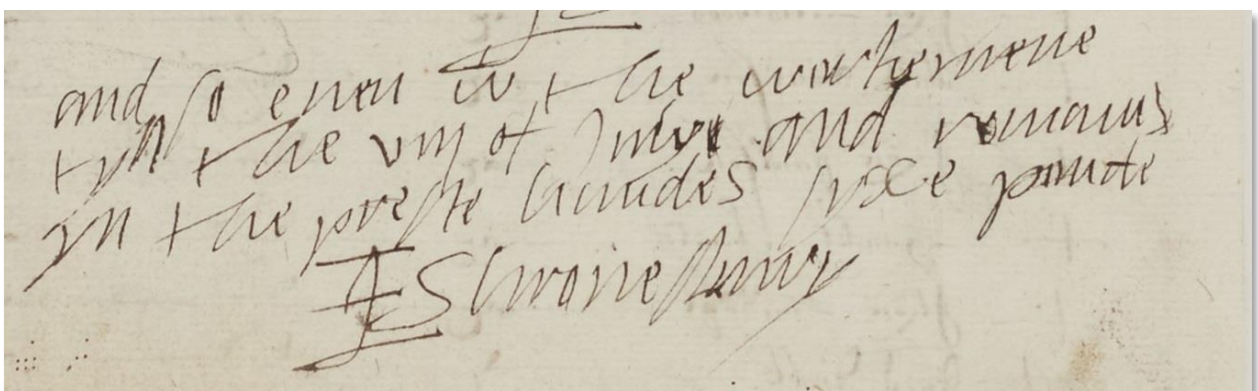 and so euen w t the workemene
tyll the viij of Julye and remanis
yn the preste handes syxe pounde
EShrowesbury